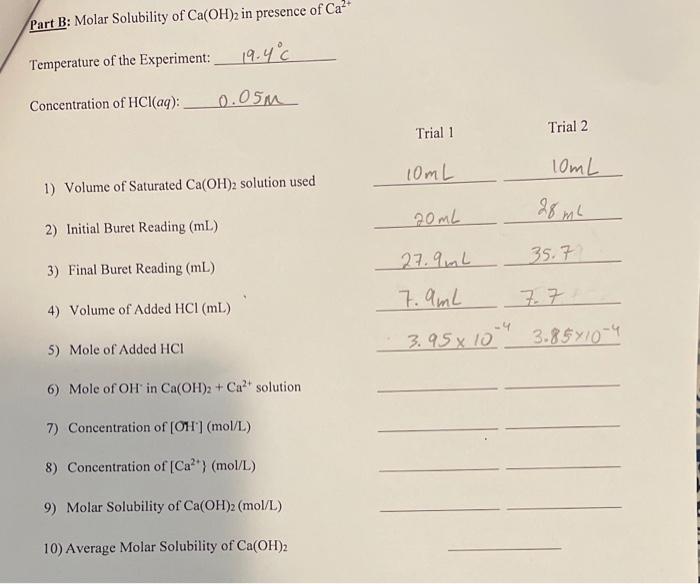 Part B: Molar Solubility of Ca(OH)₂ in presence of Ca²⁺
Temperature of the Experiment: 19.4°C
Concentration of HCl(aq): 0.05M
Trial 1 Trial 2
1) Volume of Saturated Ca(OH)₂ solution used 10mL 10mL
2) Initial Buret Reading (mL) 20mL 28mL
3) Final Buret Reading (mL) 27.9mL 35.7
4) Volume of Added HCl (mL) 7.9mL 7.7
5) Mole of Added HCl 3.95 x 10⁻⁴ 3.85x10⁻⁴
6) Mole of OH⁻ in Ca(OH)₂ + Ca²⁺ solution
7) Concentration of [OH⁻] (mol/L)
8) Concentration of [Ca²⁺} (mol/L)
9) Molar Solubility of Ca(OH)₂ (mol/L)
10) Average Molar Solubility of Ca(OH)₂